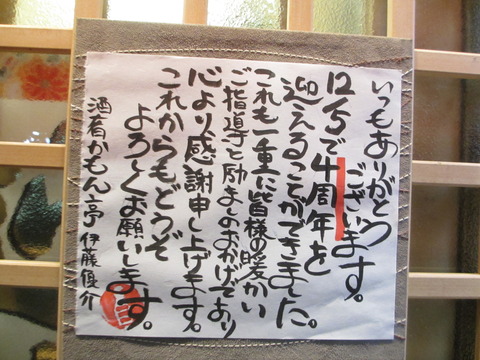 いつもありがとう
ございます。
12/5で4周年を
迎えることができました。
これも一重に皆様の暖かい
ご指導と励ましのおかげであり
心より感謝申し上げます。
これからもどうぞ
よろしくお願いします。
酒肴かもん亭 伊藤優介